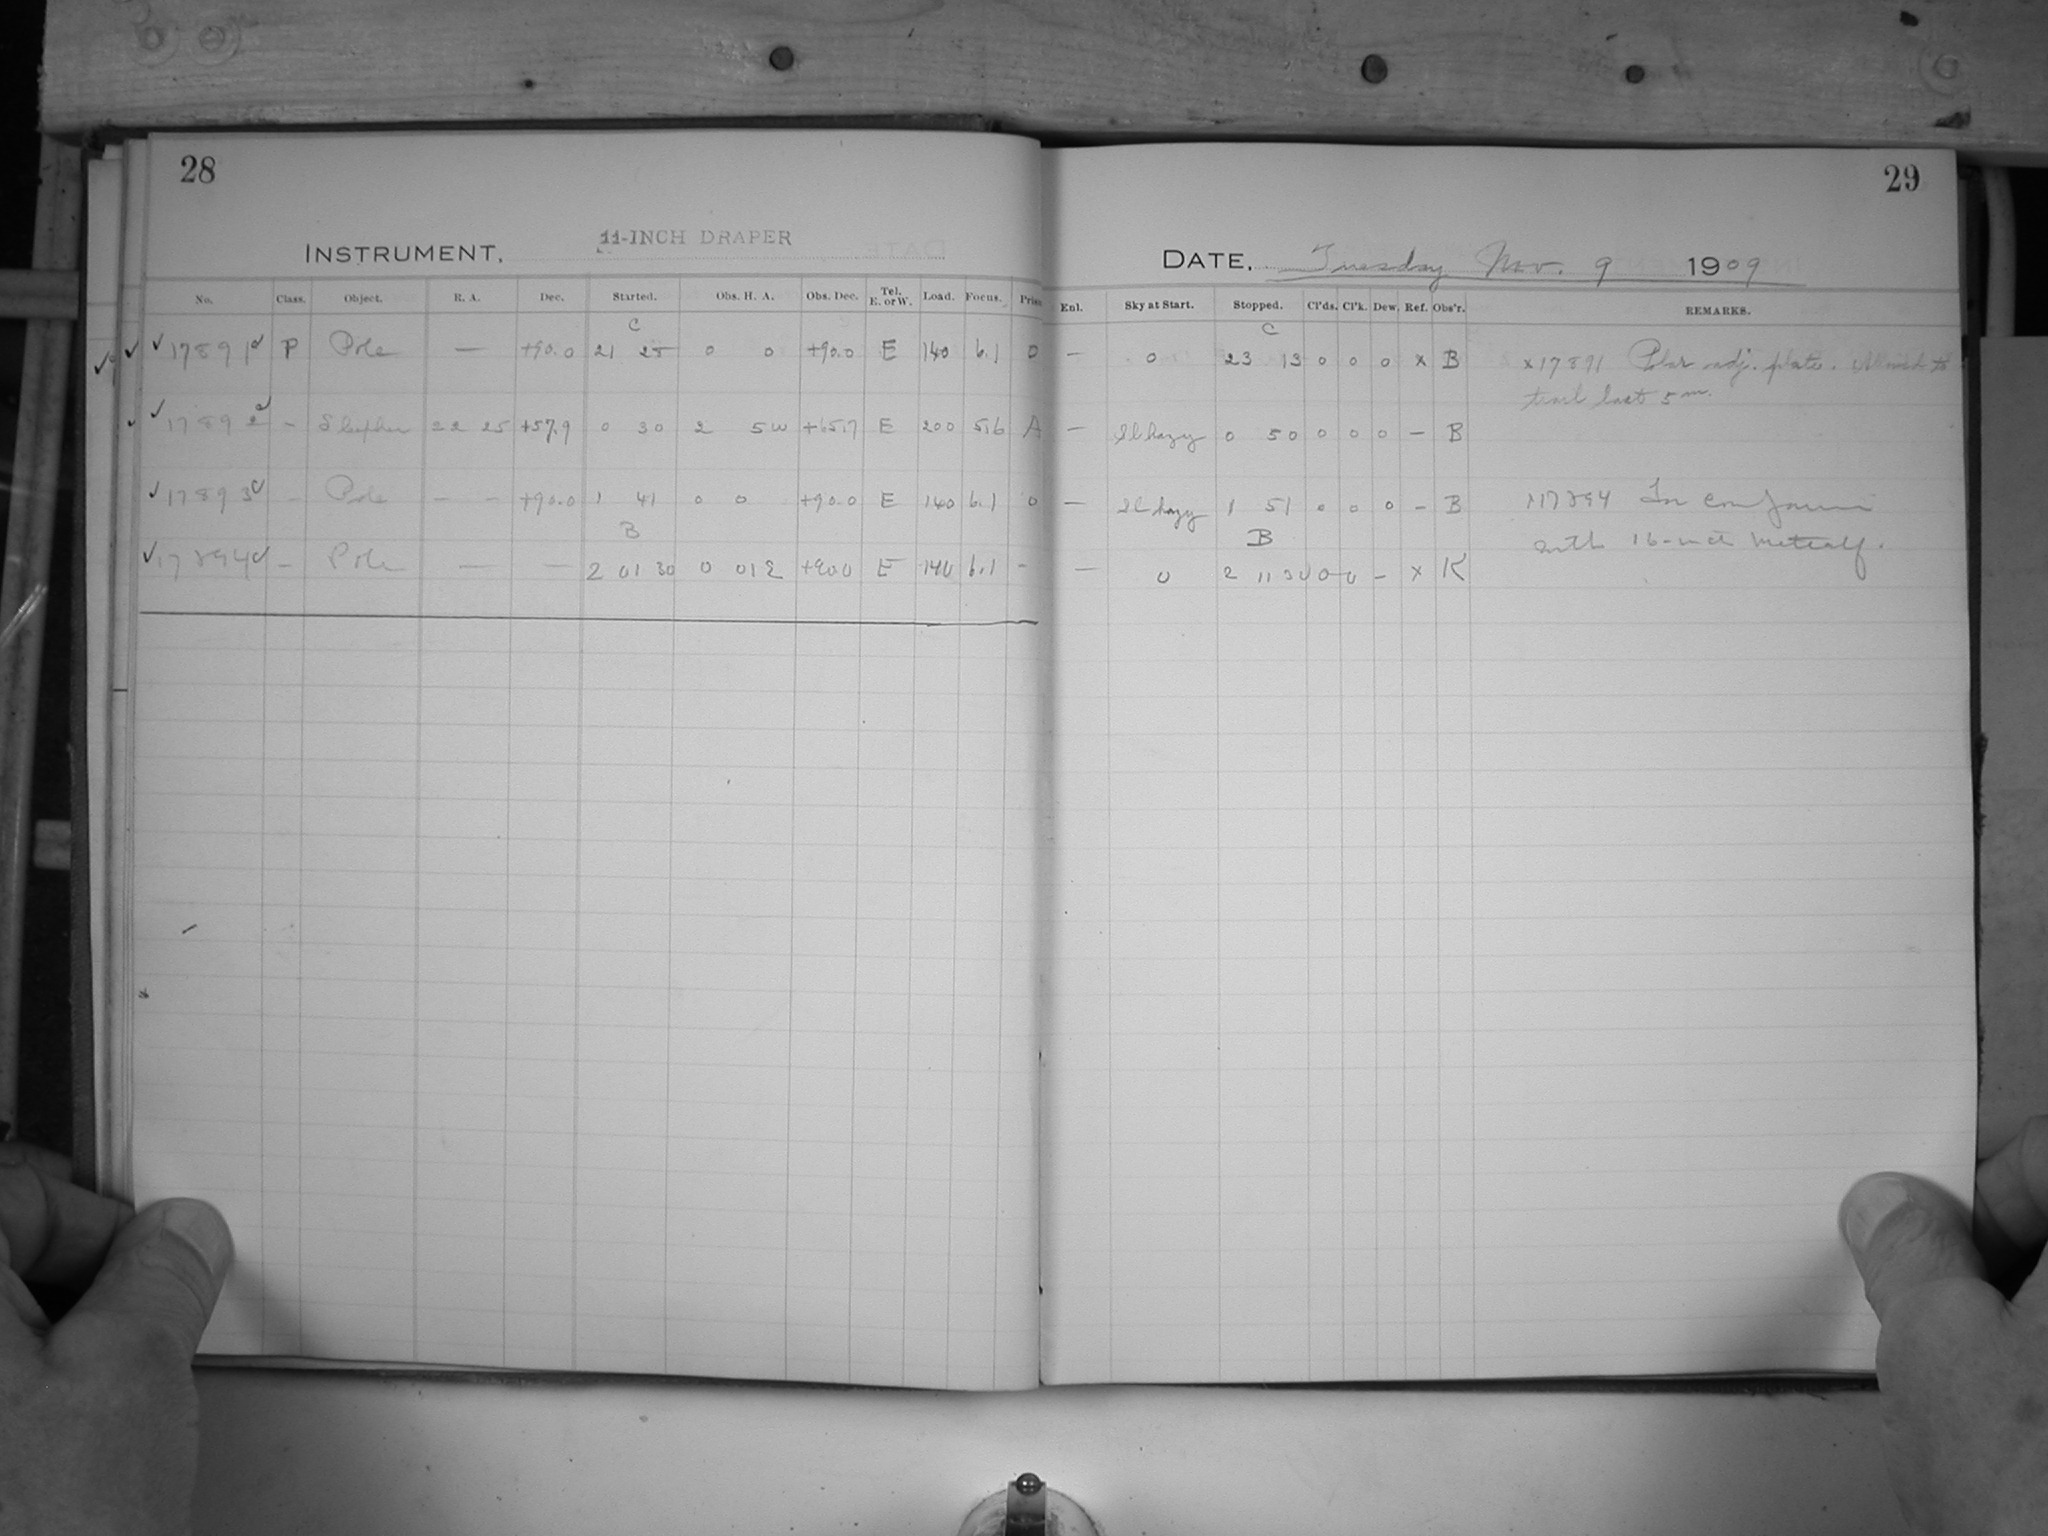 28
INSTRUMENT, 11-INCH DRAPER
No. Class. Object. R. A. Dec. Started. Obs. H. A. Obs. Dec. Tel. E. or W. Load. Focus.
C
✓ ✓ 17891 P Pole — +90.0 21 25 0 0 +90.0 E 140 6.1 0
✓ ✓ 17892 – 22 25 +57.9 0 30 2 5W E 200 5.6 A
✓ 17893 – Pole – – +90.0 1 41 0 0 +90.0 E 140 6.1 0
B
✓ 17894 – Pole — — 2 01 30 0 012 +90.0 E 140 6.1 -
29
DATE, Tuesday Nov. 9 1909
Enl. Sky at Start. Stopped. Cl'ds. Cl'k. Dew. Ref. Obs'r. REMARKS.
C
— 0 23 13 0 0 0 x B x17891 Polar adj. plate. Allowed to
trail last 5m.
— Sl hazy 0 50 0 0 0 – B
— Sl hazy 1 51 0 0 0 – B x17894 In
B
with 16-inch Metcalf.
— 0 2 11 30 0 0 – x K